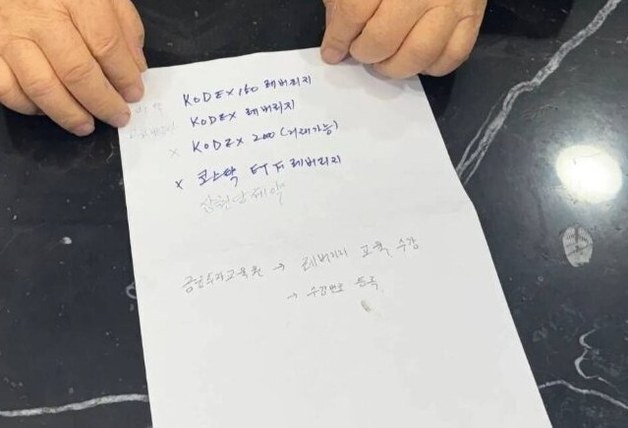 KODEX 150 레버리지
KODEX 레버리지
x KODEX 200 (거래가능)
x 코스닥 ETF 레버리지
삼천당제약
금융투자교육원 → 레버리지 교육 수강
→ 수강번호 등록